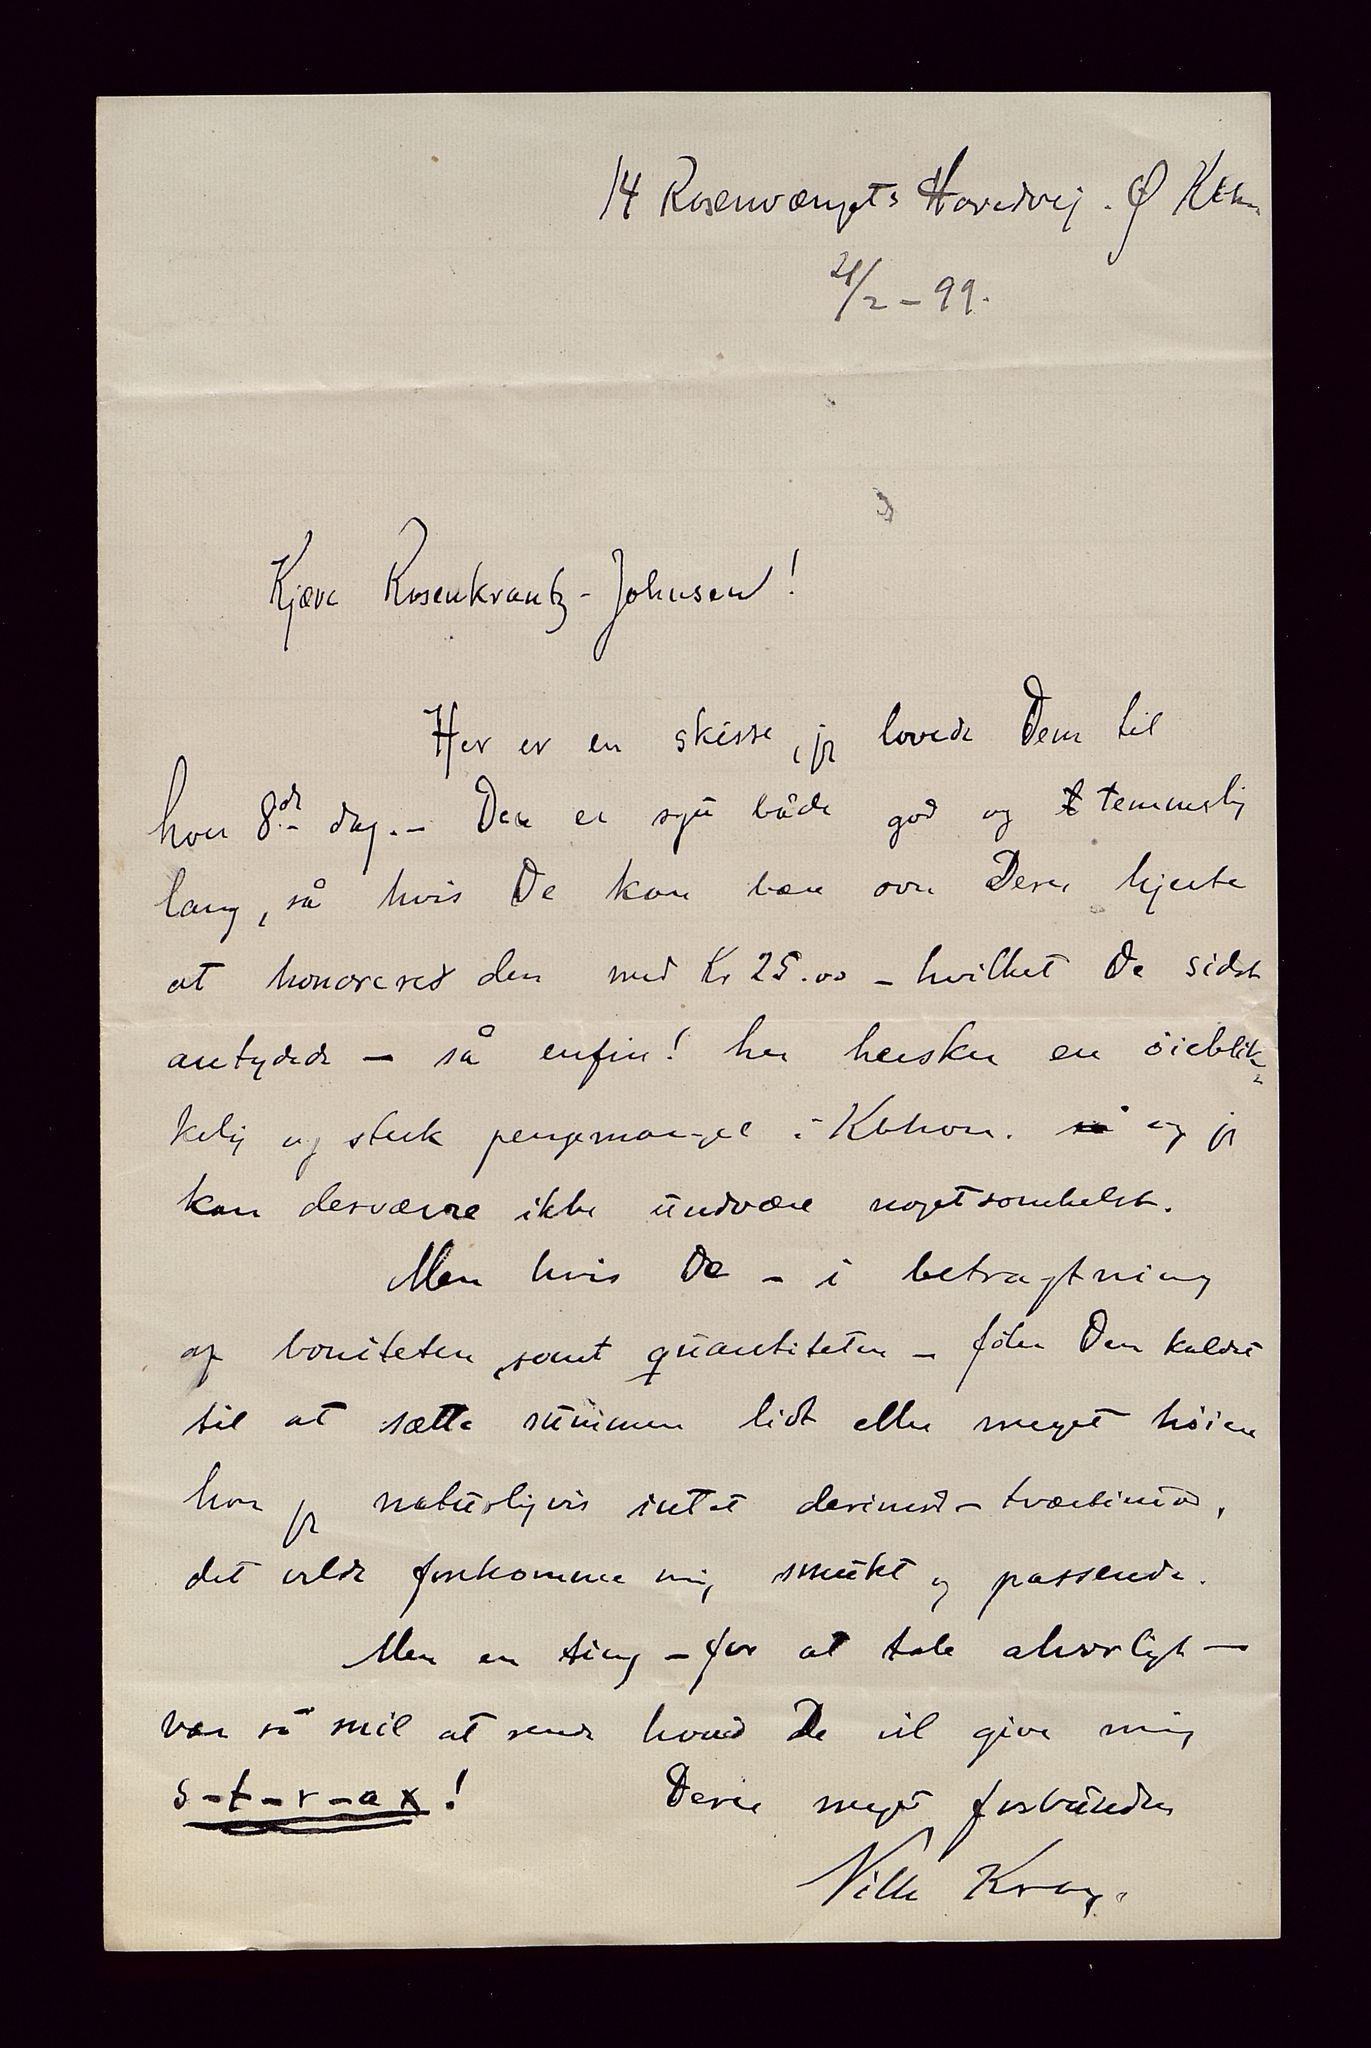 14 Rosenvængets Hovedvej. Ø Kbhn.
21/2 - 99.
Kjære Rosenkrantz-Johnsen!
Her er en skisse, jeg lovede Dem til
hver 8de dag. - Den er sgu både god og temmelig
lang, så hvis De kan bære over Deres hjerte
at honorered den med Kr 25.00 - hvilket De sidst
antydede - så enfin! her hersker en öieblik-
kelig og sterk pengemangel i Kbhvn. og jeg
kan desværre ikke undvære nogetsomhelst.
Men hvis De - i betragtning
af boniteten, samt quantiteten - föler Dem kaldet
til at sætte summen lidt eller meget höiere
har jeg naturligvis intet derimod - tværtimod,
det vilde forekomme mig smukt og passende.
Men en ting - for at tale alvorligt -
vær så snil at sende hvad De vil give mig
s-t-r-a-x! Deres meget forbundne
Vilh Krag.